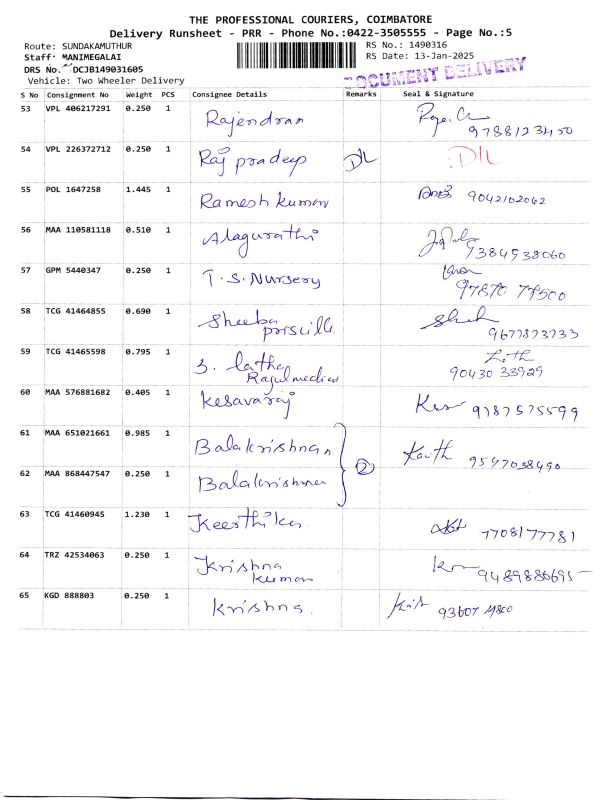 THE PROFESSIONAL COURIERS, COIMBATORE
Delivery Runsheet - PRR - Phone No.:0422-3505555 - Page No.:5
Route: SUNDAKAMUTHUR
RS No.: 1490316
Staff: MANIMEGALAI
RS Date: 13-Jan-2025
DRS No. DCJB149031605
DOCUMENT DELIVERY
Vehicle: Two Wheeler Delivery
S No Consignment No Weight PCS Consignee Details Remarks Seal & Signature
53 VPL 406217291 0.250 1 Rajendran 9788123450
54 VPL 226372712 0.250 1 Raj pradeep D/L D/L
55 POL 1647258 1.445 1 Ramesh kumar 9042102062
56 MAA 110581118 0.510 1 Alagurathi 9384938060
57 GPM 5440347 0.250 1 T.S. Nursery 97870 77500
58 TCG 41464855 0.690 1 Sheeba
priscilla 9677873733
59 TCG 41465598 0.795 1 S. latha
Ragulmedical 90430 33929
60 MAA 576881682 0.405 1 Kesavaraj 9787575599
61 MAA 651021661 0.985 1 Balakrishnan 9547038490
62 MAA 868447547 0.250 1 Balakrishnan 2
63 TCG 41460945 1.230 1 Keerthika 7708177781
64 TRZ 42534063 0.250 1 Krishna
kumar 9489886695
65 KGD 888803 0.250 1 Krishna.